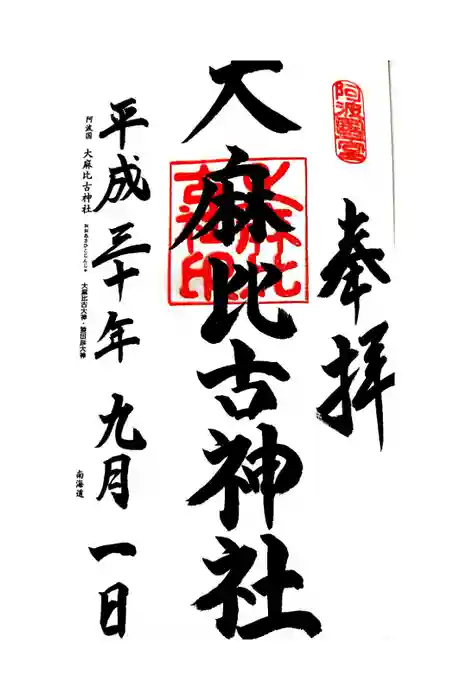 奉拝
阿波一宮
大麻比古神社
平成三十年 九月 一日
阿波国 大麻比古神社
おおあさひこじんじゃ
大麻比古大神・猿田彦大神
南海道